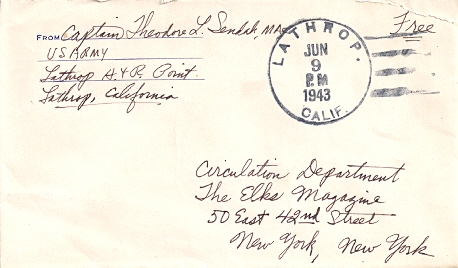 FROM Captain Theodore L. Sendak, MA
US ARMY
Lathrop H. & R. Point
Lathrop, California
Free
LATHROP.
JUN
9
P.M
1943
CALIF.
Circulation Department
The Elks Magazine
50 East 42nd Street
New York, New York